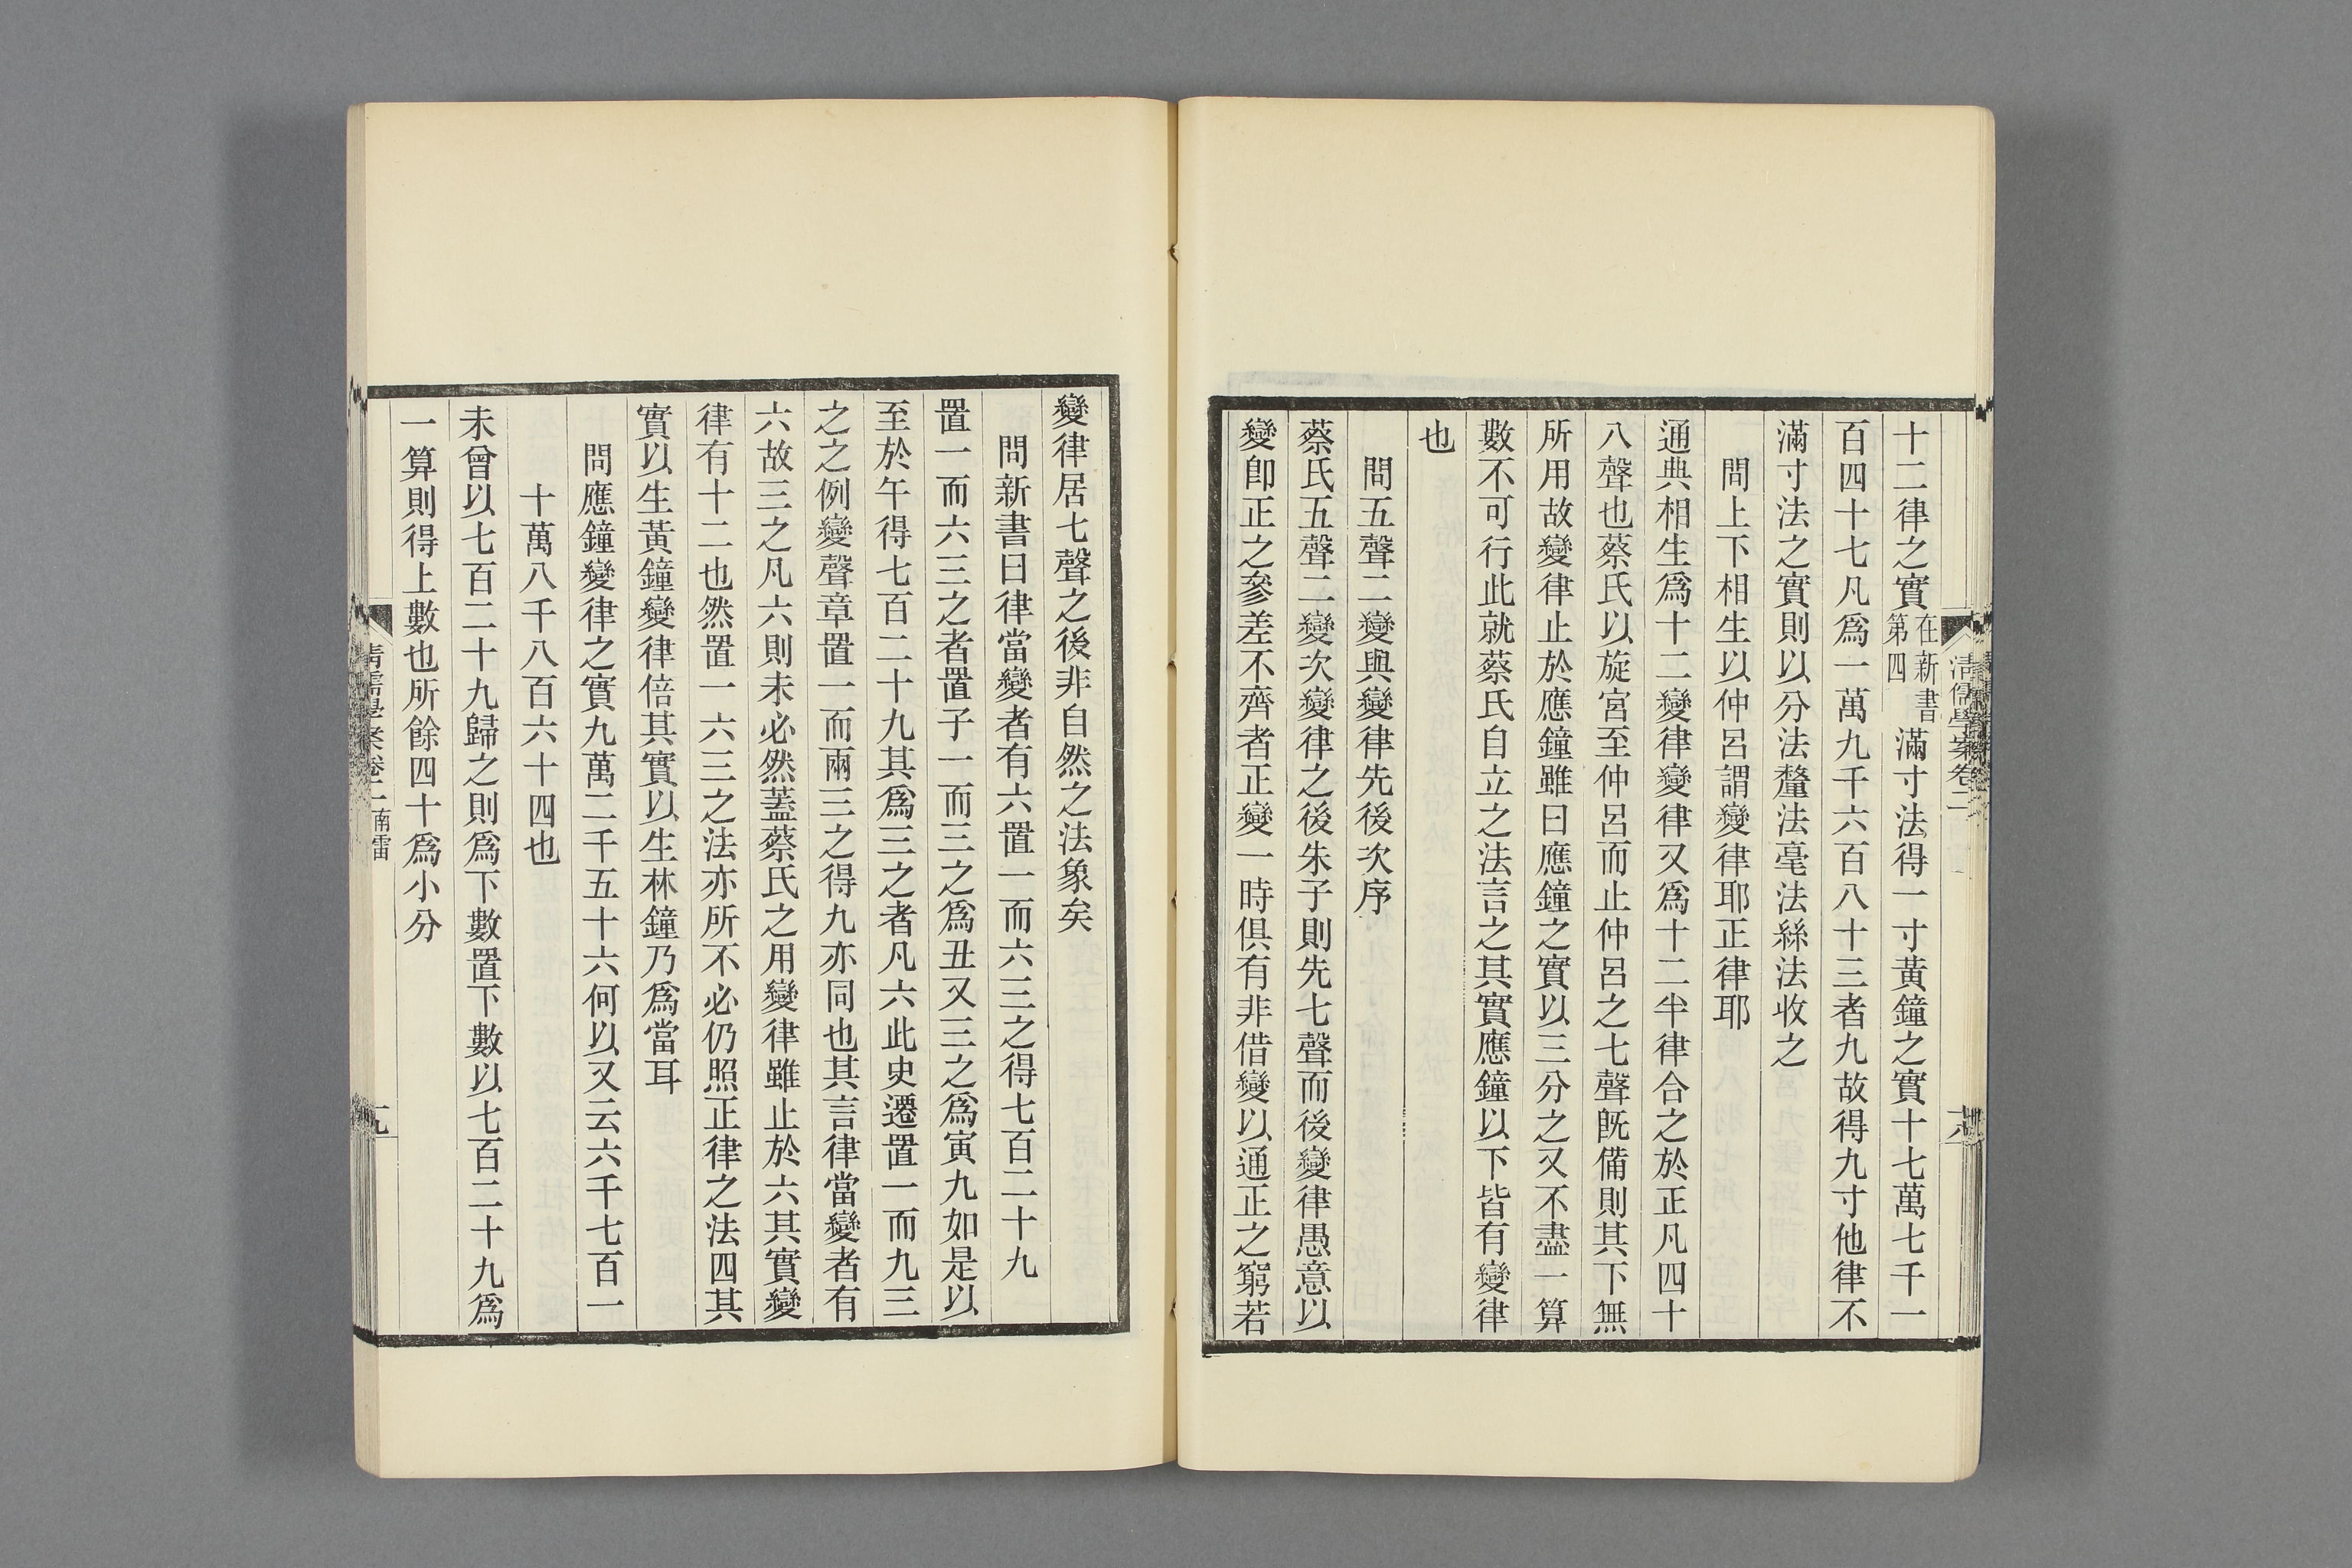 清儒學案卷二
十二律之實在新書第四滿寸法得一寸黃鐘之實十七萬七千一
百四十七凡爲一萬九千六百八十三者九故得九寸他律不
滿寸法之實則以分法釐法毫法絲法收之
問上下相生以仲呂謂變律耶正律耶
通典相生爲十二變律變律又爲十二半律合之於正凡四十
八聲也蔡氏以旋宮至仲呂而止仲呂之七聲旣備則其下無
所用故變律止於應鐘雖曰應鐘之實以三分之又不盡一算
數不可行此就蔡氏自立之法言之其實應鐘以下皆有變律
也
問五聲二變與變律先後次序
蔡氏五聲二變次變律之後朱子則先七聲而後變律愚意以
變卽正之參差不齊者正變一時俱有非借變以通正之窮若
變律居七聲之後非自然之法象矣
問新書曰律當變者有六置一而六三之得七百二十九
置一而六三之者置子一而三之爲丑又三之爲寅九如是以
至於午得七百二十九其爲三之者凡六此史遷置一而九三
之之例變聲章置一而兩三之得九亦同也其言律當變者有
六故三之凡六則未必然蓋蔡氏之用變律雖止於六其實變
律有十二也然置一六三之法亦所不必仍照正律之法四其
實以生黃鐘變律倍其實以生林鐘乃爲當耳
問應鐘變律之實九萬二千五十六何以又云六千七百一
十萬八千八百六十四也
未曾以七百二十九歸之則爲下數置下數以七百二十九爲
一算則得上數也所餘四十爲小分
清儒學案卷二 南雷